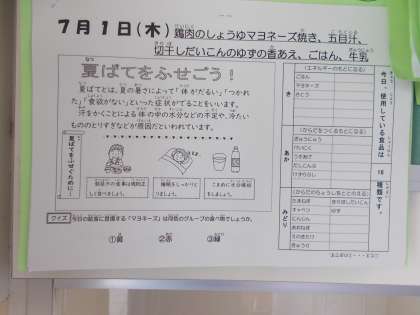 7月1日(木) 鶏肉のしょうゆマヨネーズ焼き、五目汁、
切干しだいこんのゆずの香あえ、ごはん、牛乳
夏ばてをふせごう!
夏ばてとは、夏の暑さによって「体がだるい」「つかれ
た」「食欲がない」といった症状がでることをいいます。
汗をかくことによる体の中の水分などの不足や、冷たい
もののとりすぎなどが原因だといわれています。
夏ばてをふせぐために…
朝昼夕の食事は規則正
しく食べましょう。
睡眠をしっかりと
りましょう。
こまめに水分補給
をしましょう。
クイズ 今日の給食に登場する「マヨネーズ」は何色のグループの食べ物でしょうか。
①黄 ②赤 ③緑
今日、使用している食品は
種類です。
き
(エネルギーのもとになる)
ごはん
マヨネーズ
さとう
あか
(からだをつくるもとになる)
ぎゅうにゅう
けいにく
みどり
(からだのちょうしをととのえる)
たまねぎ 切り干しだいこん
キャベツ ゆず
にんじん
えのきたけ
きゅうり